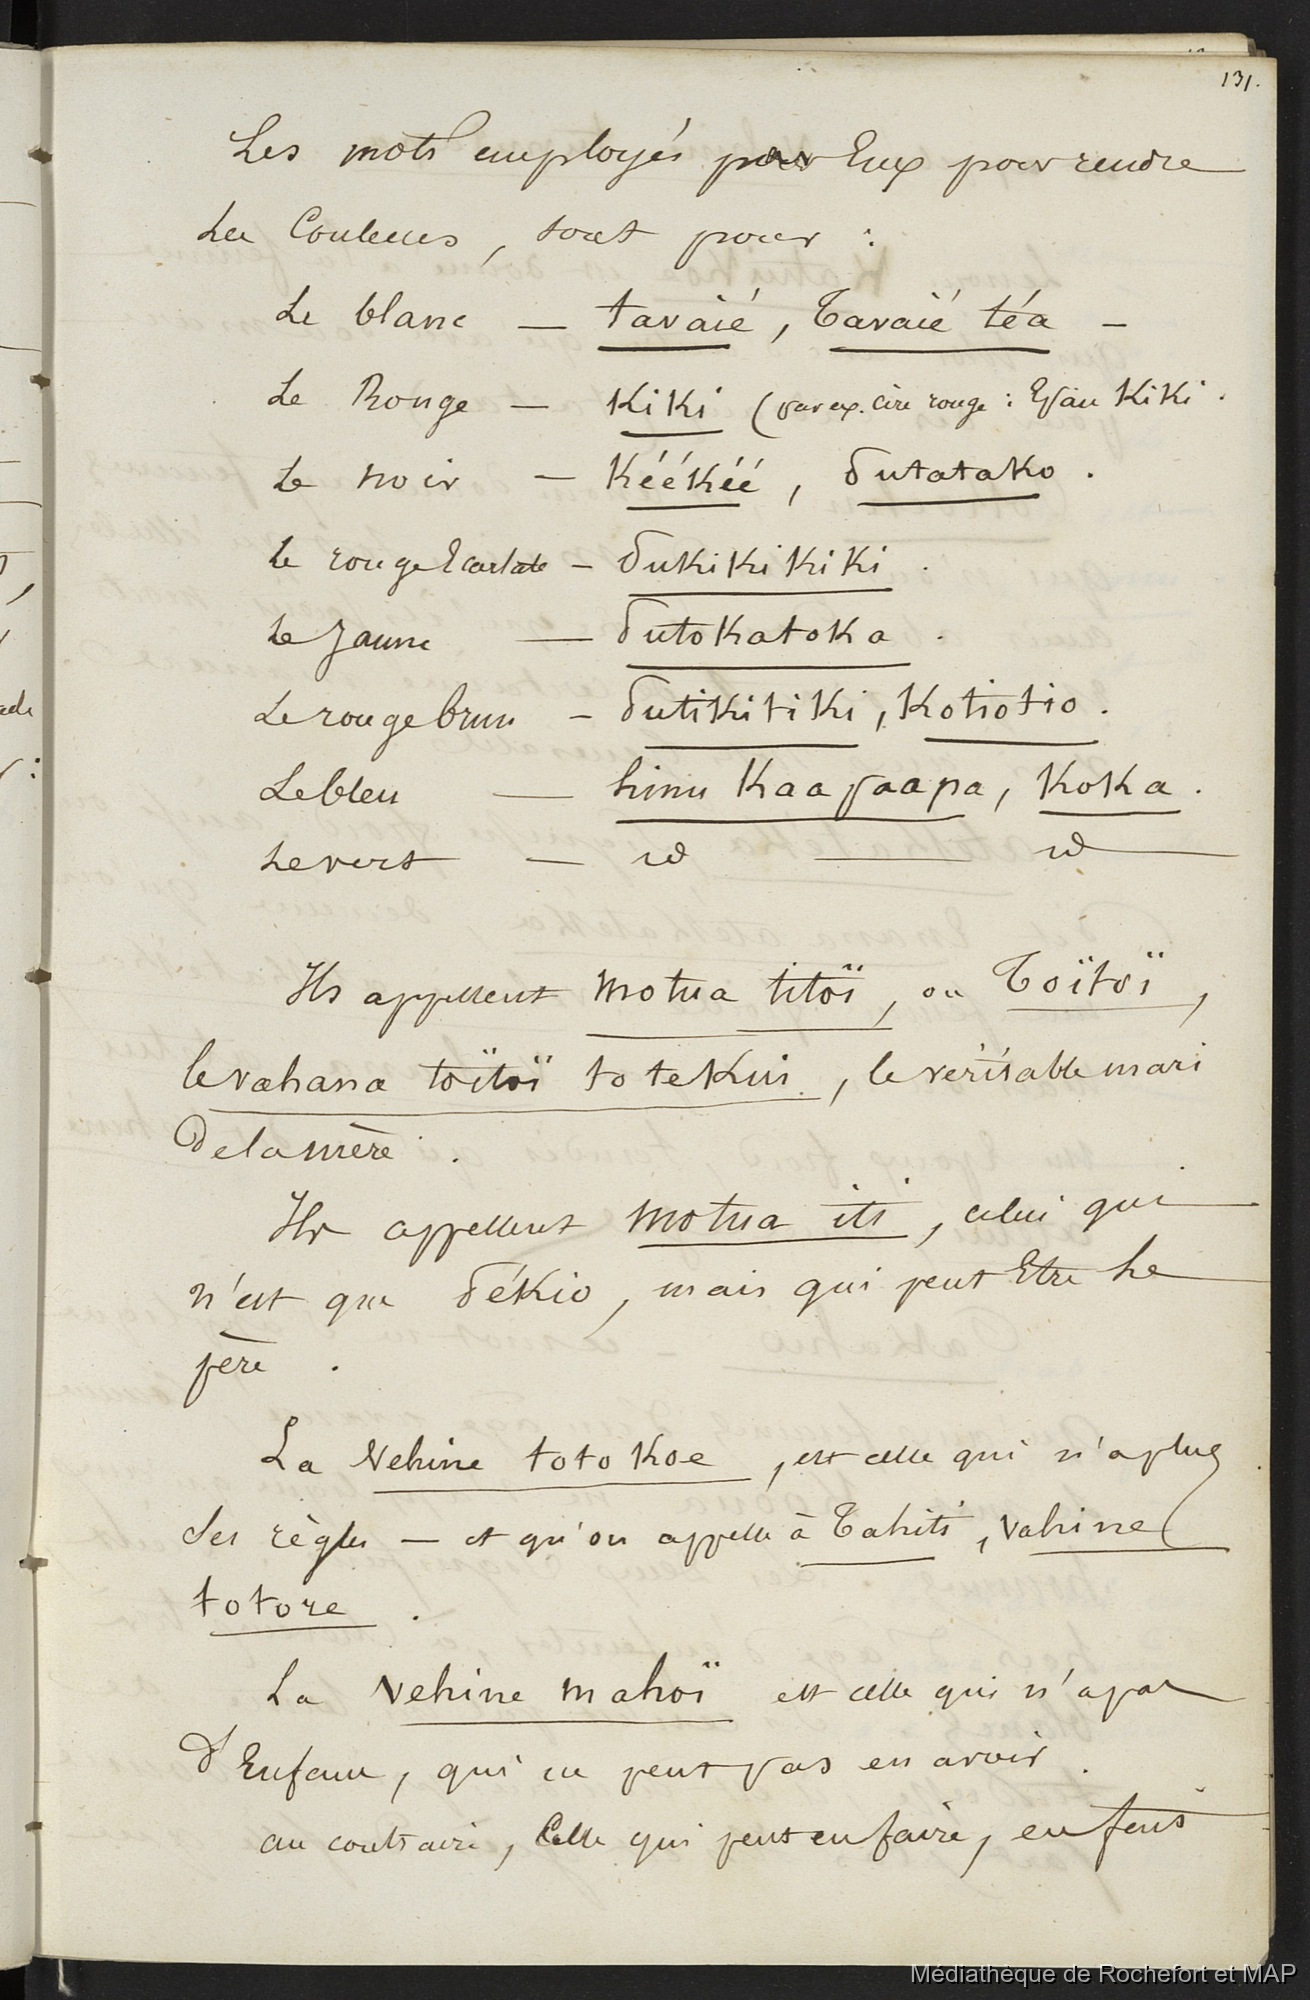 131.
Les mots employés par Eux pour rendre
les Couleurs, sont pour :
Le blanc — tavaïé, Tavaïé téa —
Le Rouge — Kiki (par ex. cire rouge : Epau Kiki .
Le noir — Kéékéé, Tutatako .
le rouge Ecarlate — Tukikikiki .
le Jaune — Tutokatoka .
Le rouge brun — Tutikitiki, Kotiotio .
Le bleu — hinu Kaapaapa, Koka .
Le vert — id — id —
Ils appellent motua titoï, ou Toïtoï,
le vahana toïtoï to te Kui, le véritable mari
De la mère .
Ils appellent motua iti, celui qui
n'est que Pékio, mais qui peut Etre Le
père .
La Vehine toto Koe, est celle qui n'a plus
des règles — et qu'on appelle à Tahiti, Vahine
totore .
La Vehine mahoï est celle qui n'a pas
d'Enfans, qui ne peut pas en avoir .
au contraire, Celle qui peut en faire, en fait
Médiathèque de Rochefort et MAP